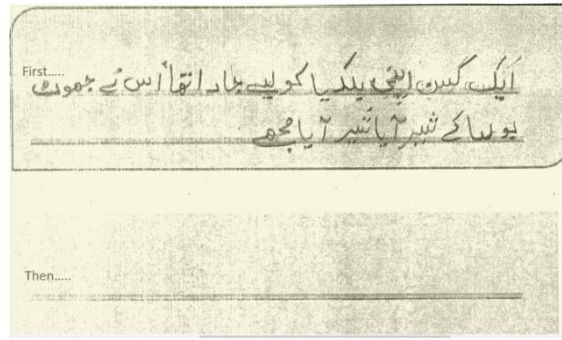 First.....
ایک کسن اپنی بلکدیا کو لیے جارہا تھا اس نے جھوٹ
بولا کے شیر آیا شیر آیا مجھے
Then.....